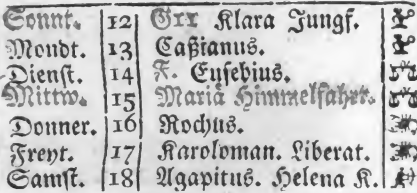 Sonnt. 12 Grr Klara Jungf.
Mondt. 13 Caßianus.
Dienst. 14 F. Eusebius.
Mittw. 15 Mariä Himmelfahrt.
Donner. 16 Rochus.
Freyt. 17 Karoloman. Liberat.
Samst. 18 Agapitus. Helena K.